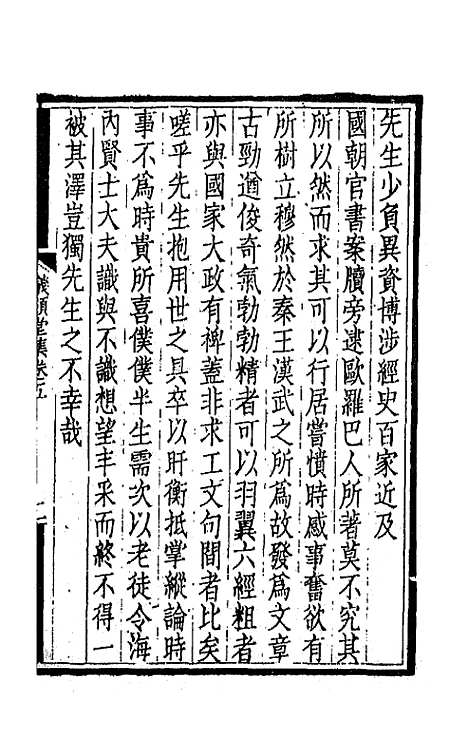 先生少負異資博涉經史百家近及
國朝官書案牘旁逮歐羅巴人所著莫不究其
所以然而求其可以行居嘗憤時感事奮欲有
所樹立穆然於秦王漢武之所爲故發爲文章
古勁遒俊奇氣勃勃精者可以羽翼六經粗者
亦與國家大政有裨蓋非求工文句間者比矣
嗟乎先生抱用世之具卒以盱衡抵掌縱論時
事不爲時貴所喜僕僕半生需次以老徒令海
內賢士大夫識與不識想望丰采而終不得一
被其澤豈獨先生之不幸哉
儀顧堂集卷五